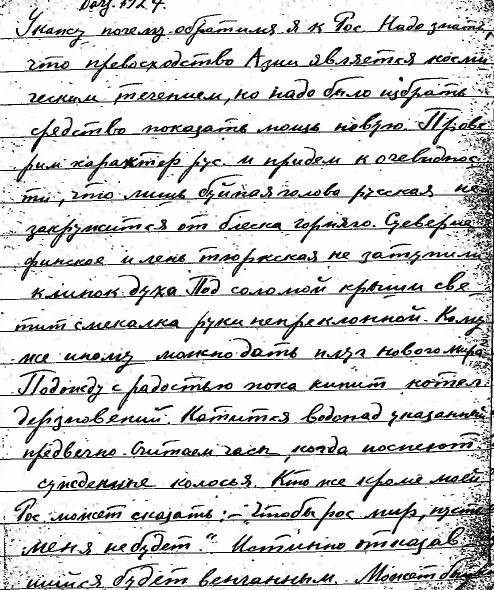 Darj. 1924.
Укажу почему обратился я к Рос. Надо знать,
что превосходство Азии является косми
ческим течением, но надо было избрать
средство показать мощь новую. Прове
рим характер рус. и придем к очевиднос
ти, что лишь буйная голова русская не
закружится от блеска горняго.
финское и лень тюркская не затупили
клинок духа Под соломой крыши све
тит смекалка руки непреклонной. Кому
же иному можно дать плуг нового мира
Подожду с радостью пока кипит котел
дерзновений. Катится водопад указанный
предвечно. Считаем часы, когда поспеют
сужденные колосья. Кто же кроме моей
Рос. может сказать: — "Чтобы рос мир, пусть
меня не будет." Истинно отказав
шийся будет венчанным. Может быть